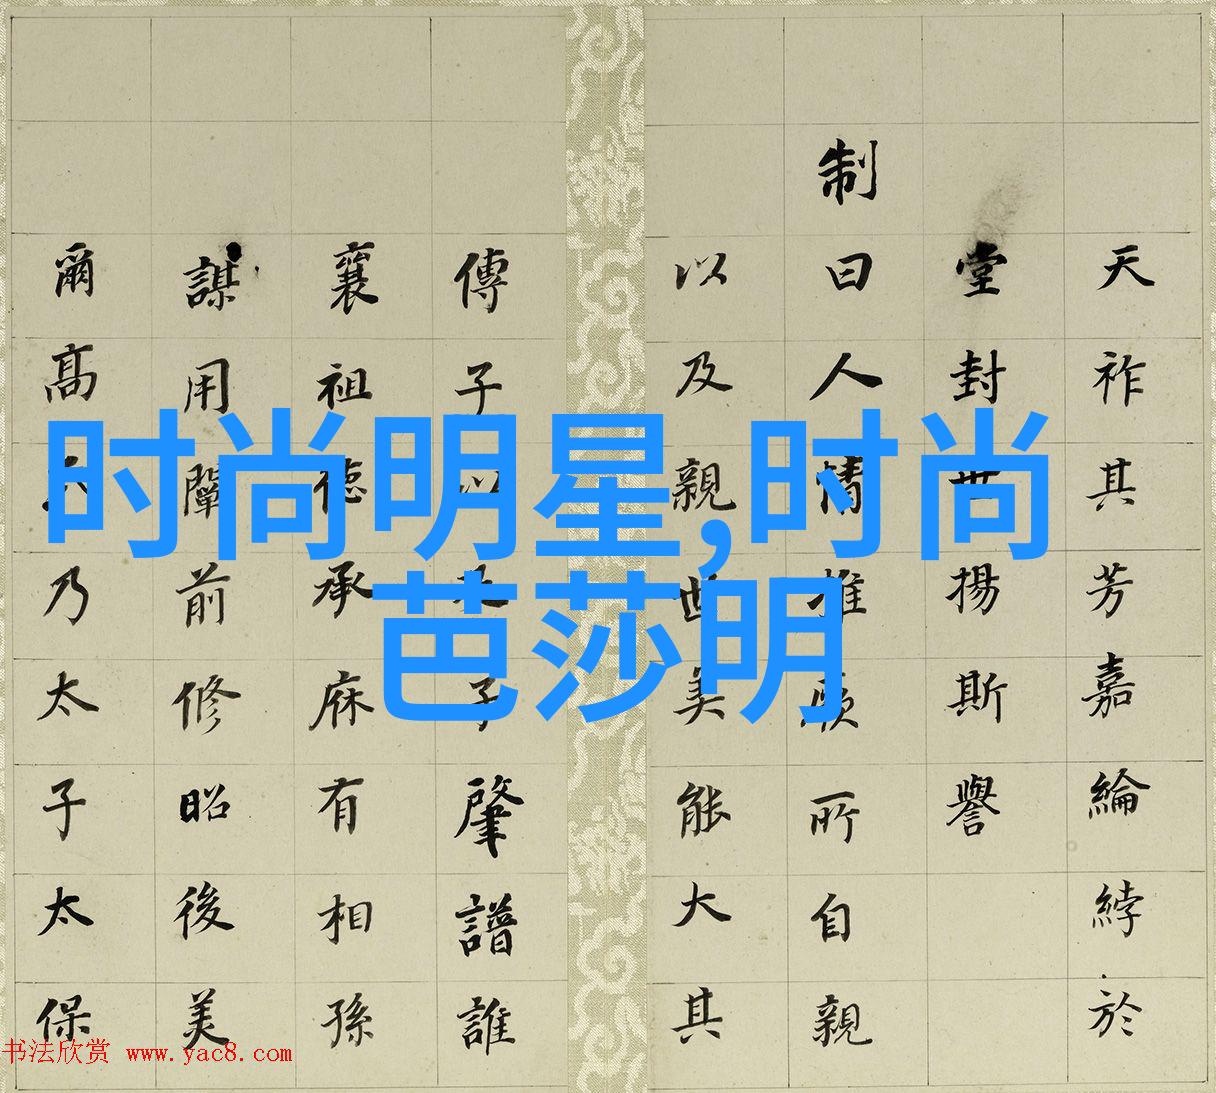 天祚其芳嘉綸綍於
堂封世揚斯譽
制
曰人情推原所自親
以及親世美能大其
傳子以及子肇譜誰
襄祖德承庥有相孫
謀用闡前修昭後美
爾高 乃太子太保
时尚明星,时尚
芭莎明
书法欣赏 www.yac8.com